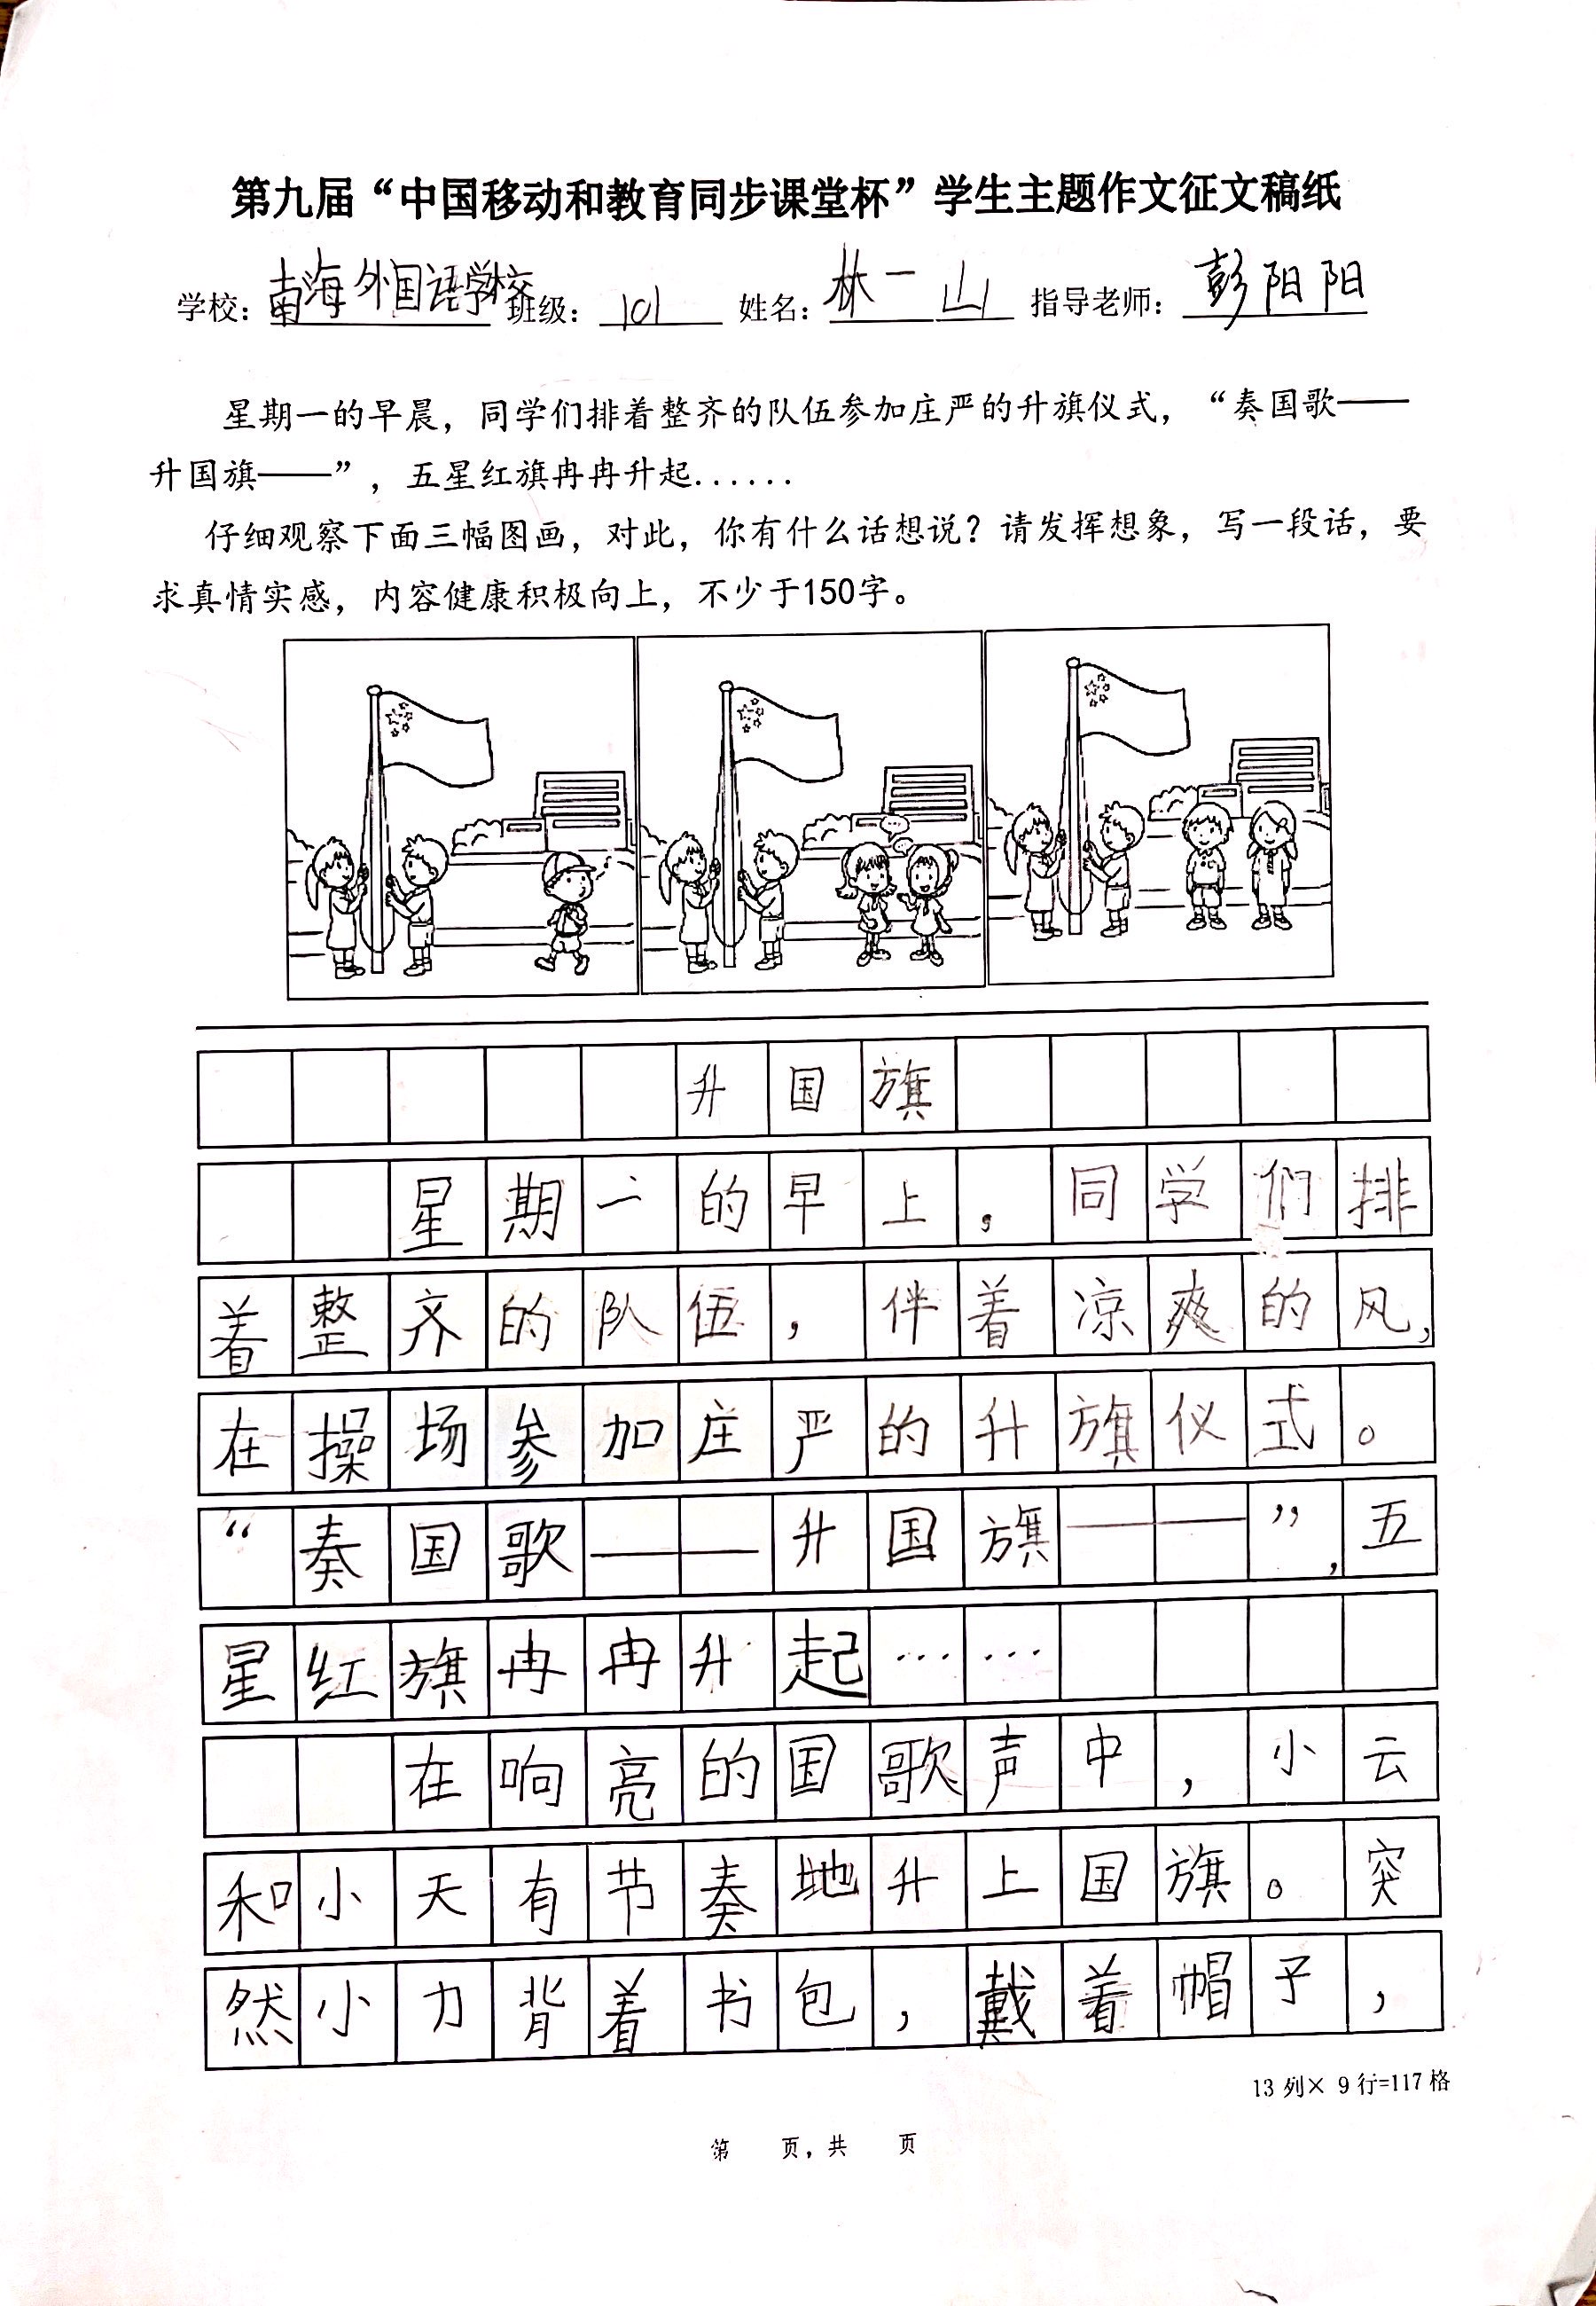 第九届“中国移动和教育同步课堂杯”学生主题作文征文稿纸
学校：南海外国语学校 班级：101 姓名：林一山 指导老师：彭阳阳
星期一的早晨，同学们排着整齐的队伍参加庄严的升旗仪式，“奏国歌——
升国旗——”，五星红旗冉冉升起......
仔细观察下面三幅图画，对此，你有什么话想说？请发挥想象，写一段话，要
求真情实感，内容健康积极向上，不少于150字。
升国旗
星期一的早上，同学们排
着整齐的队伍，伴着凉爽的风，
在操场参加庄严的升旗仪式。
“奏国歌——升国旗——”，五
星红旗冉冉升起……
在响亮的国歌声中，小云
和小天有节奏地升上国旗。突
然小力背着书包，戴着帽子，
13列×9行=117格
第 页，共 页